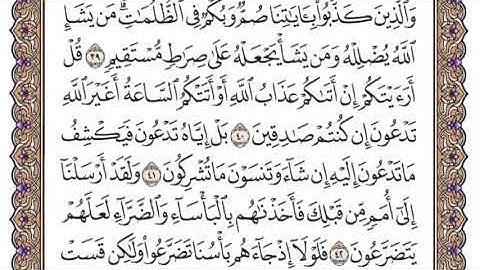 وَٱلَّذِينَ كَذَّبُوا۟ بِـَٔايَـٰتِنَا صُمٌّ وَبُكْمٌ فِى ٱلظُّلُمَـٰتِ ۗ مَن يَشَإِ
ٱللَّهُ يُضْلِلْهُ وَمَن يَشَأْ يَجْعَلْهُ عَلَىٰ صِرَٰطٍ مُّسْتَقِيمٍ ٣٩ قُلْ
أَرَءَيْتَكُمْ إِنْ أَتَىٰكُمْ عَذَابُ ٱللَّهِ أَوْ أَتَتْكُمُ ٱلسَّاعَةُ أَغَيْرَ ٱللَّهِ
تَدْعُونَ إِن كُنتُمْ صَـٰدِقِينَ ٤٠ بَلْ إِيَّاهُ تَدْعُونَ فَيَكْشِفُ
مَا تَدْعُونَ إِلَيْهِ إِن شَآءَ وَتَنسَوْنَ مَا تُشْرِكُونَ ٤١ وَلَقَدْ أَرْسَلْنَآ
إِلَىٰٓ أُمَمٍ مِّن قَبْلِكَ فَأَخَذْنَـٰهُم بِٱلْبَأْسَآءِ وَٱلضَّرَّآءِ لَعَلَّهُمْ
يَتَضَرَّعُونَ ٤٢ فَلَوْلَآ إِذْ جَآءَهُم بَأْسُنَا تَضَرَّعُوا۟ وَلَـٰكِن قَسَتْ